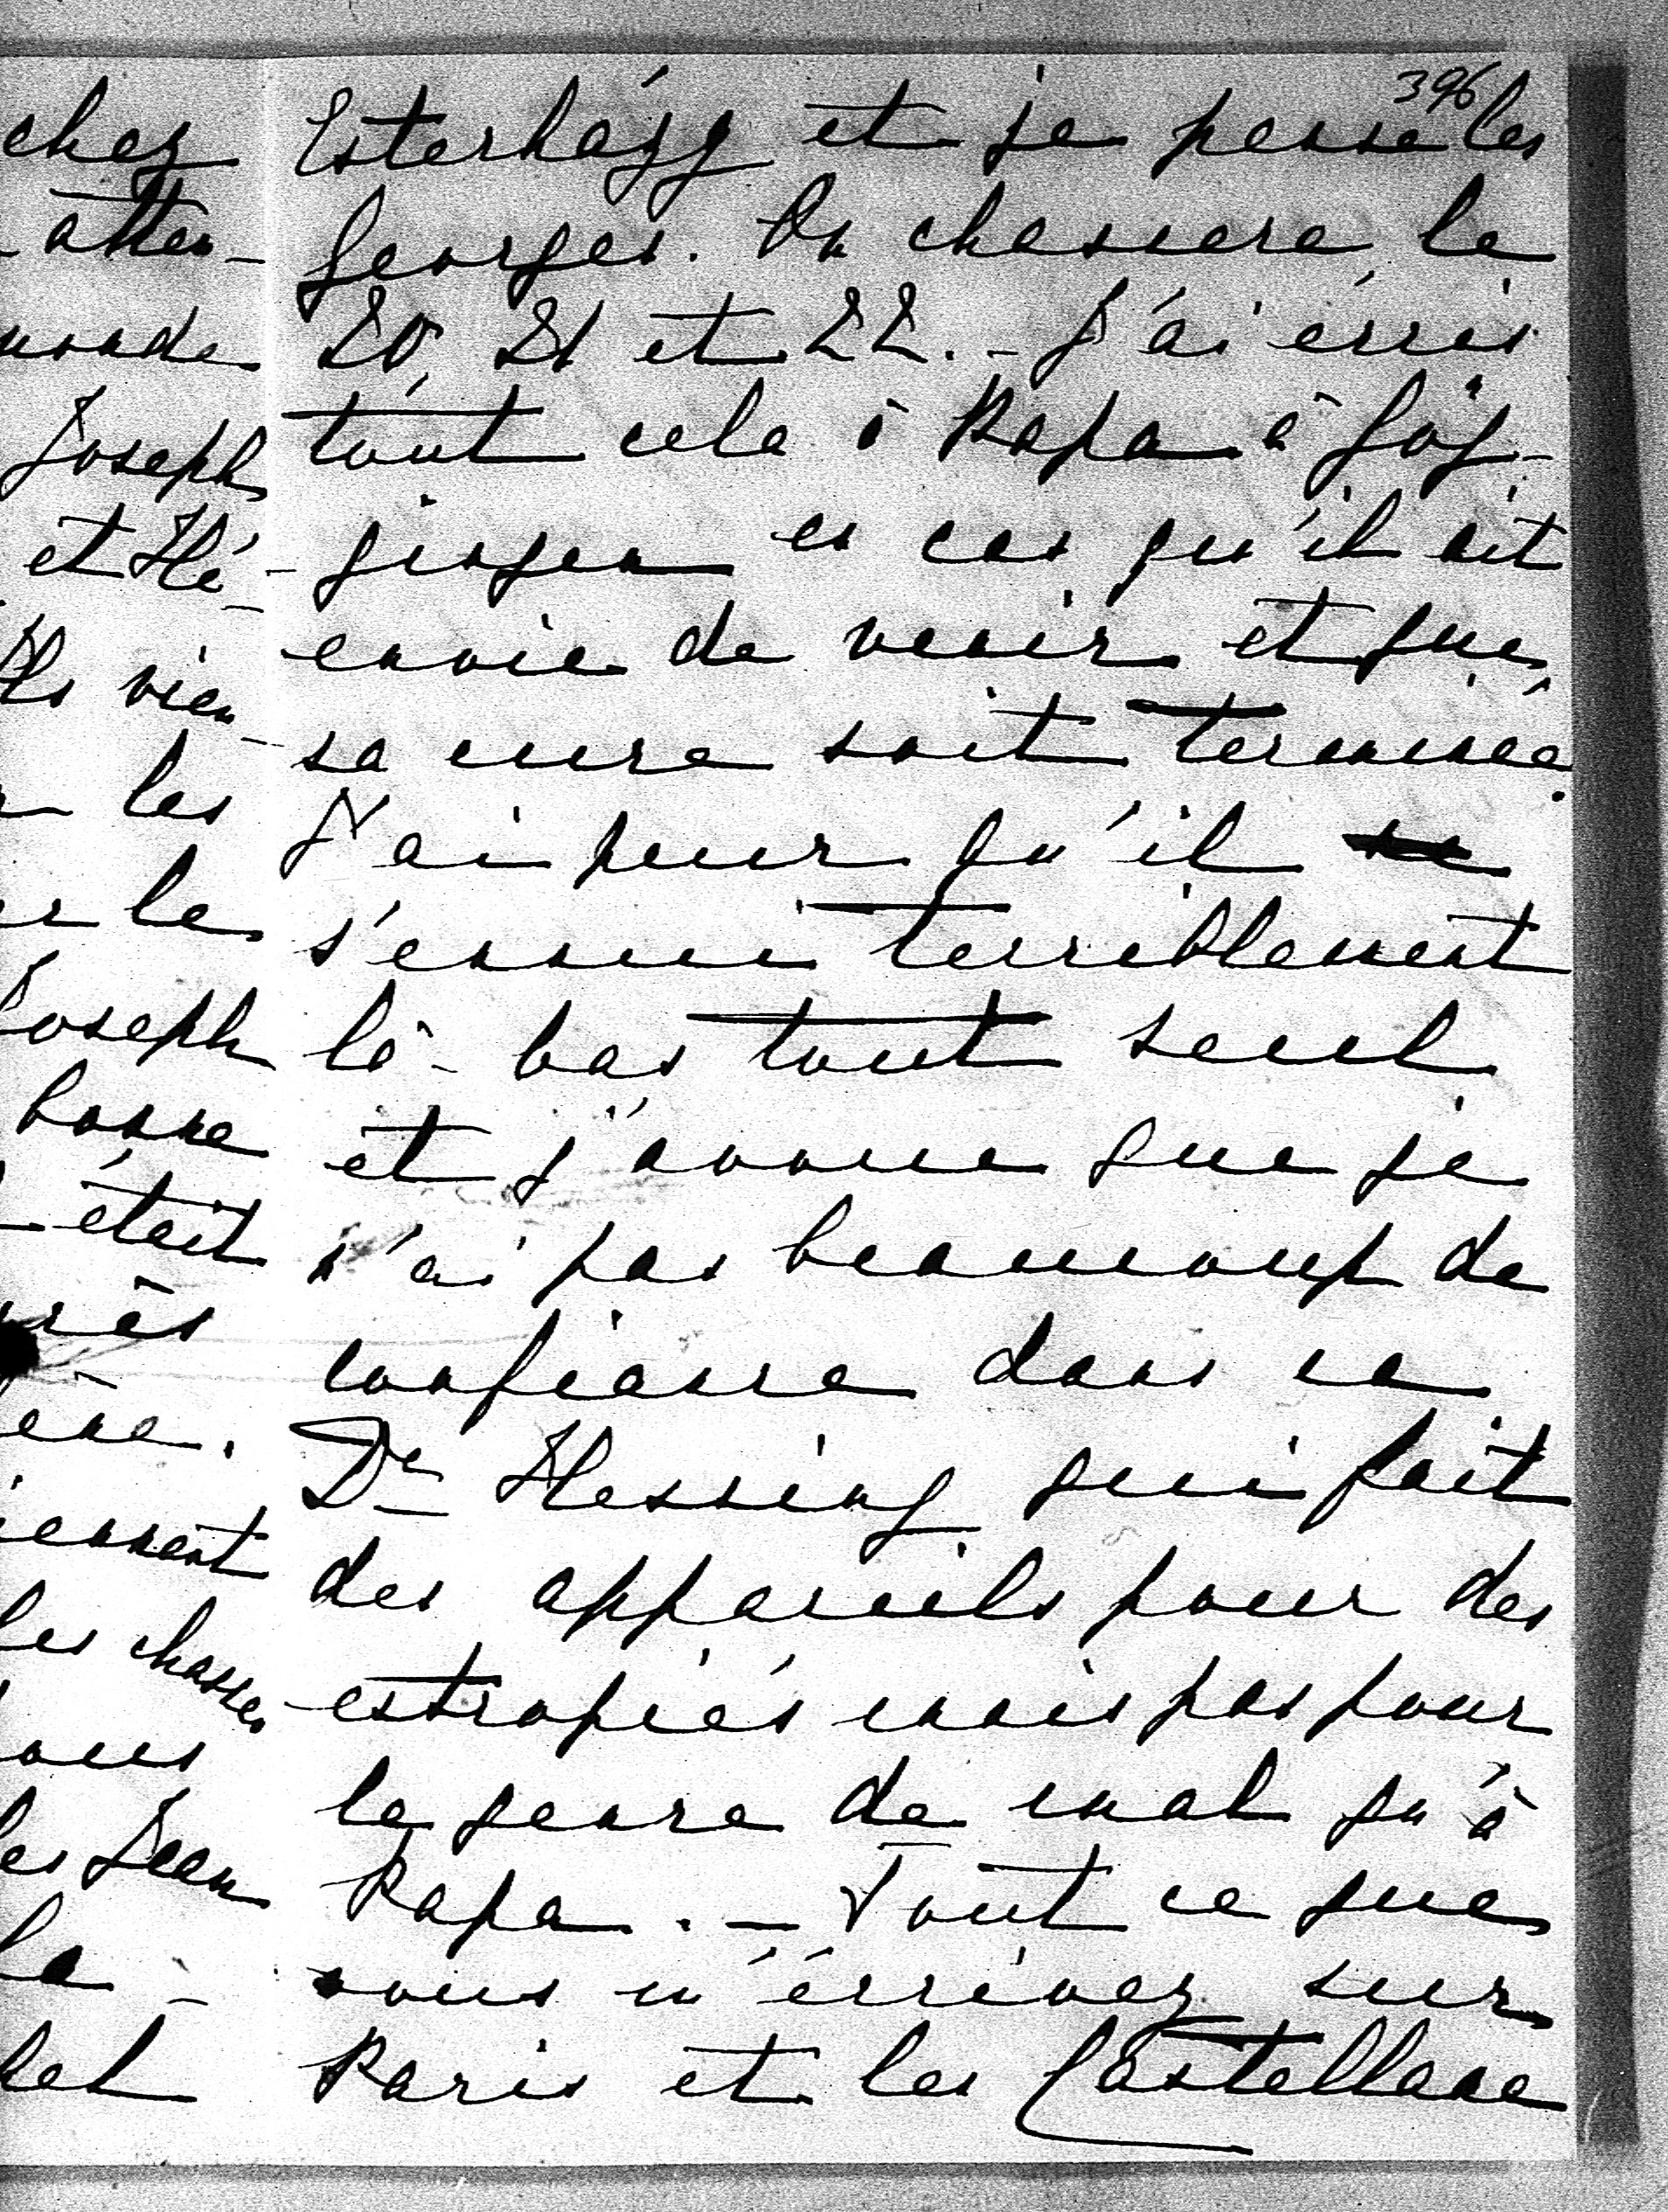 396
chez
atten-
monde
Joseph
et Hé-
Ils vien-
les
le
Joseph
bonne
était
près
ène.
iennent
les chasses
ous
les Jean
la-
hel
Esterházy et je pense les
Georges. On chassera le
20, 21 et 22. - J'ai écris
tout cela à Papa à Gög-
gingen en cas qu'il ait
envie de venir et que
sa cure soit terminée.
J'ai peur qu'il
s'ennui terriblement
là-bas tout seul
et j'avoue que je
n'ai pas beaucoup de
confiance dans ce
Dr Hessing qui fait
des appareils pour des
estropiés mais pas pour
le genre de mal qu'à
Papa. - Tout ce que
vous m'écrivez sur
Paris et les Castellane